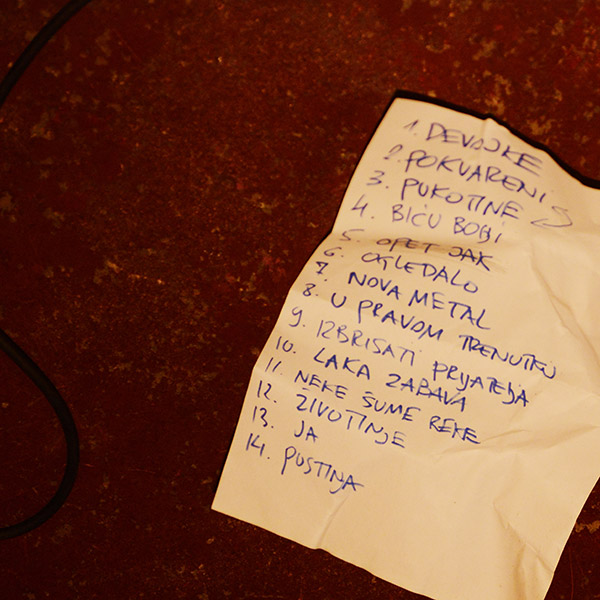 1. DEVOJKE
2. POKVARENI
3. PUKOTINE
4. BIĆU BOLJI
5. OPET JAK
6. OGLEDALO
7. NOVA METAL
8. U PRAVOM TRENUTKU
9. IZBRISATI PRIJATELJA
10. LAKA ZABAVA
11. NEKE ŠUME REKE
12. ŽIVOTINJE
13. JA
14. PUSTINJA